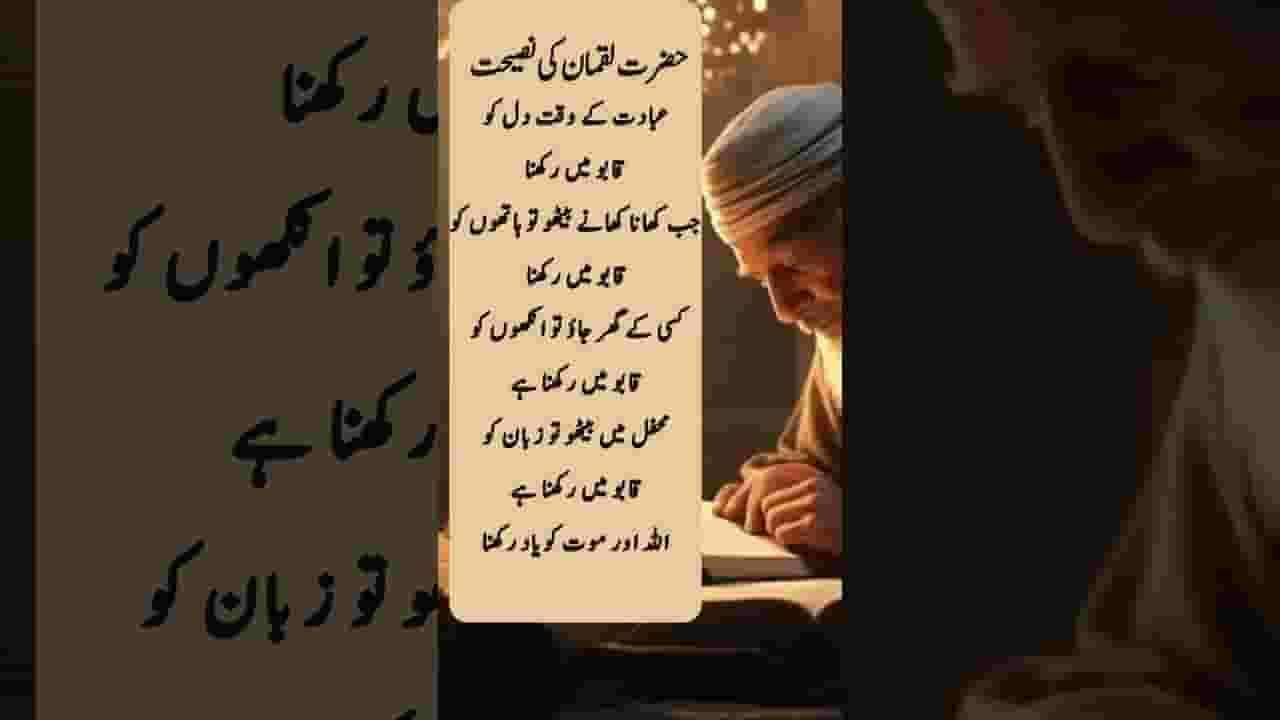 حضرت لقمان کی نصیحت
عبادت کے وقت دل کو
قابو میں رکھنا
جب کھانا کھانے بیٹھو تو ہاتھوں کو
قابو میں رکھنا
کسی کے گھر جاؤ تو انکھوں کو
قابو میں رکھنا ہے
محفل میں بیٹھو تو زبان کو
قابو میں رکھنا ہے
اللہ اور موت کو یاد رکھنا
رکھنا
تو انکھوں کو
رکھنا ہے
تو زبان کو